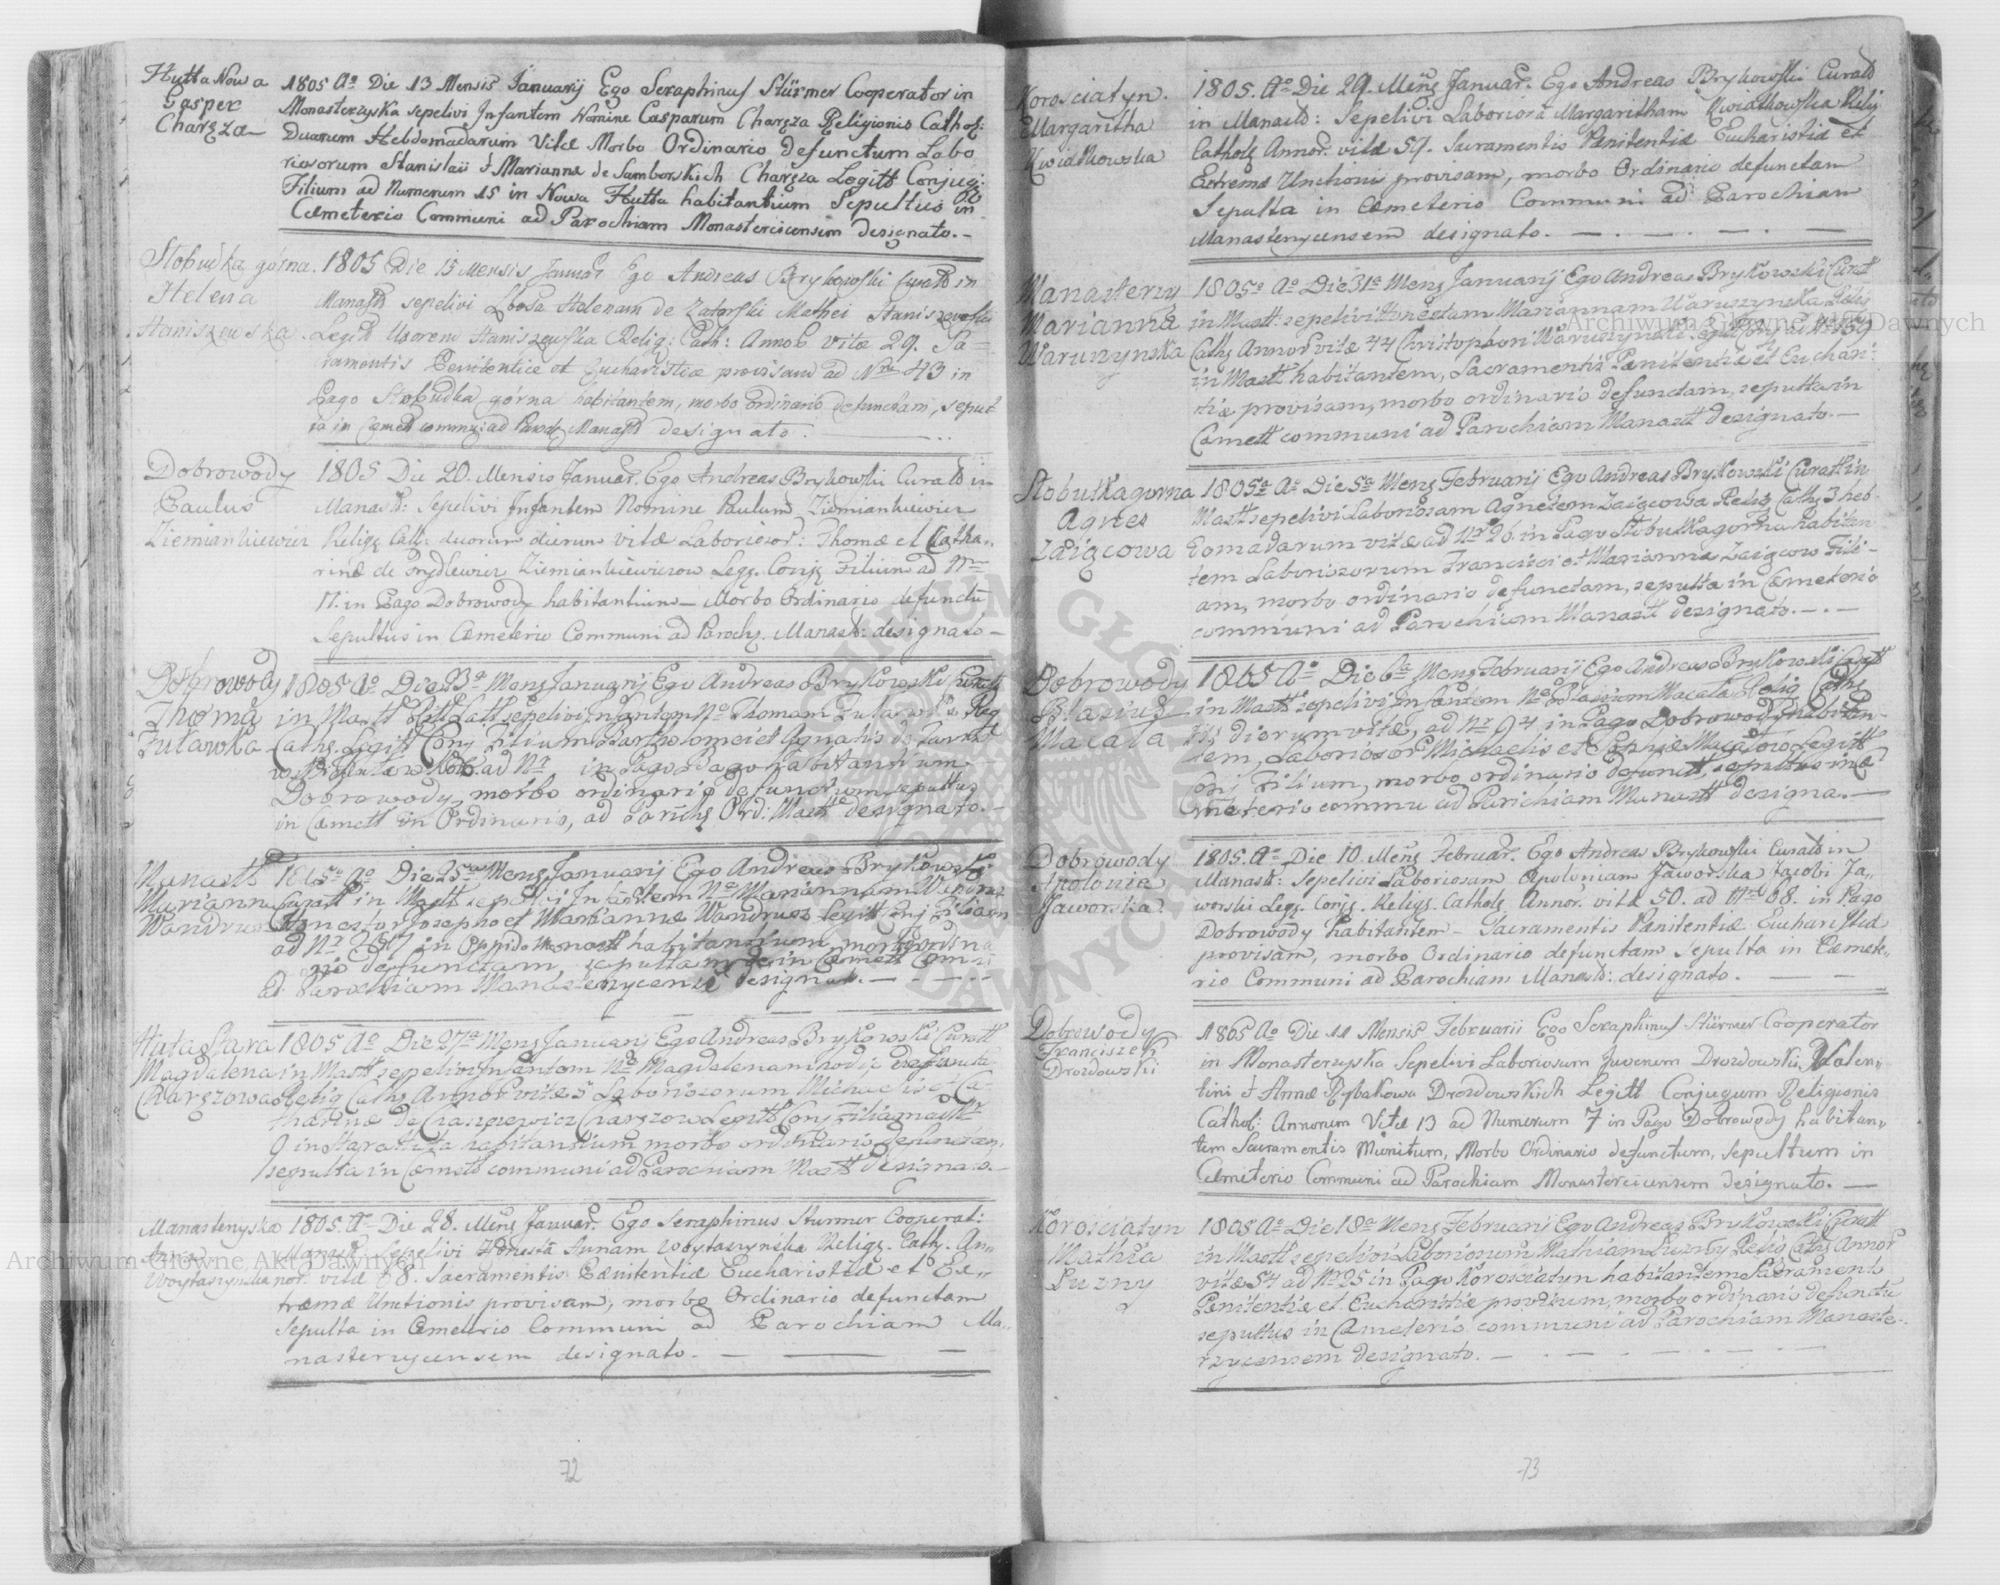 Hutta Nowa
Casper
Charęza
1805 Aº Die 13 Mensis Januarij Ego Seraphinus Stürmer Cooperator in
Monasterzyska sepelivi Infantem Nomine Casparum Charęza Religionis Cathol:
Duarum Hebdomadarum Vitæ Morbo Ordinario defunctum Labo
riosorum Stanislaii et Marianna de Samborskich Charęza Legitt Conjug:
Filium ad Numerum 15 in Nowa Hutta habitantium Sepultus in
Cæmeterio Communi ad Parochiam Monasterciensem designato.-
Słobudka górna.
Helena
Staniszewska.
1805 Die 15 Mensis Januar Ego Andreas Brykowski Curatt in
Manastt sepelivi Lbosa Helenam de Zatorski Mathei Staniszewski
Legitt Uxorem Staniszewska Relig: Cath: Annor vitæ 29. Sa=
cramentis Penitentiæ et Eucharistiæ provisam ad Nrm 43 in
Pago Słobudka górna habitantem, morbo ordinario defunctam, sepul
ta in Cæmet commu: ad Paroch Manastt designato.
Dobrowody
Paulus
Ziemiankiewicz
1805 Die 20. Mensis Januar. Ego Andreas Brykowski Curatt in
Manastt: Sepelivi Infantem Nomine Paulum Ziemiankiewicz
Religs Cath: duorum dierum vitæ Laboriosor: Thomæ et Catha..
rinæ de Frydlewicz Ziemiankiewiczow Legs. Conjg Filium ad Nrm
17. in Pago Dobrowody habitantium - Morbo Ordinario defunctū
Sepultus in Cæmeterio Communi ad Paroch. Manastt: designato -
Dobrowody
Thoma
Futawka
1805 Aº Die 23ª Mens Januarij Ego Andreas Brykowski Curatt
in Mastt Ritt Latt sepelivi Infantem Nº Thomam
Caths. Legitt Conj Filium Bartholomei et Agnatis de
ad Nr in Pago habitantium
Dobrowody, morbo ordinario defunctum sepultus
in Cæmett in Ordinario, ad Parichs Ord: Mastt designato.-
Manastt
Marianna
Wandrusz
1805º Aº Die 25ª Mens Januarij Ego Andreas Brykowski
Curatt in Mastt sepelivi Infantem Nº Mariannam Wandrusz
Honestor Josepho et Mariannæ Wandrusz Legitt Conj Filiam
ad Nr 267 in Oppido Manastt habitantium morbo ordina
rio defunctam, sepulta in Cæmett Com
ad Parochiam Manasterycensē designat.-
Huta Stara
Magdalena
Charęzowa
1805 Aº Die 27ª Mens Januarij Ego Andreas Brykowski Curatt
in Mastt sepelivi Infantem Nº Magdalenam hodie defuncta
Relig Caths Annor vitæ 5 Laboriosorum Michaelis et Ca-
tharinæ de Charęzow Legitt Conj Filia ad Nr
9 in Stara Huta habitantium morbo ordinario defunctam,
sepulta in Cæmett communi ad Parochiam Mastt designato.-
Manasterzyska
Anna
Woytaszynska
1805. Aº Die 28. Mens Januar. Ego Seraphinus Sturmer Cooperat:
Manast: Sepelivi Honestā Annam Woytaszyńska Religs. Cath. An..
nor. vitæ 88. Sacramentis Pænitentiæ Eucharistiæ et Ex..
træmæ Unctionis provisam, morbo Ordinario defunctam
Sepulta in Cæmeterio Communi ad Parochiam Ma..
nasterzycensem designato.
72
Korosciatyn.
Margaritha
Kwiatkowska
1805. Aº Die 29. Mens Januar. Ego Andreas Brykowski Curatt
in Manastt: Sepelivi Laboriosā Margaritham Kwiatkowska Relig
Catholg Annor. vitæ 57. Sacramentis Pænitentiæ Eucharistiæ et
Extremæ Unctioni provisam, morbo Ordinario defunctam
Sepulta in Cæmeterio Communi ad Parochiam
Manasterzycensem designato.
Manasterzy
Marianna
Waruszynska
1805º Aº Die 31ª Mens Januarij Ego Andreas Brykowski Curatt
in Mastt. sepelivi Honestam Mariannam Waruszynska Relig
Caths Annor vitæ 44 Christophori Waruszynski
in Mastt habitantem, Sacramentis Pænitentiæ et Euchari:
tiæ provisam, morbo ordinario defunctam, sepulta in
Cæmett communi ad Parochiam Manastt designato.-
Słobułka gorna
Agnes
Zaięcowa
1805ª Aº Die 5ª Mens Februarij Ego Andreas Brykowski Curatt in
Mastt sepelivi Laboriosam Agnetem Zaięcowa Religs Caths 3 heb-
domadarum vitæ ad Nr 26. in Pago Słobułka gorna habitan
tem Laboriosorum Francisci et Marianna Zaięcow Fili-
am, morbo ordinario defunctam, sepulta in Cæmeterio
communi ad Parochiam Manastt designato.-.-
Dobrowody
Blasius
Macała
1805 Aº Die 6ª Mens Februarij Ego Andreas Brykowski Curatt
in Mastt sepelivi Infantem Nº Blasium Macała Relig Caths
dierum vitæ, ad Nr 94 in Pago Dobrowody habitan-
tem, Laboriosor Michaelis et Sophiæ Macałow Legitt
Conj Filium, morbo ordinario defunctt, sepultus in Cæ
meterio commu ad Parichiam Manastt designa.-
Dobrowody
Apolonia
Jaworska
1805. Aº Die 10. Mens Februar. Ego Andreas Brykowski Curatt in
Manastt: Sepelivi Laboriosam Apoloniam Jaworska Jacobi Ja..
worski Legs. Conjs. Religs. Catholg Annor. vitæ 50. ad Nrū 68. in Pago
Dobrowody habitantem - Sacramentis Pænitentiæ Eucharistiæ
provisam, morbo Ordinario defunctam Sepulta in Cæmete..
rio Communi ad Parochiam Manastt: designato.
Dobrowody
Franciszek
Drozdowski
1805 Aº Die 11 Mensis Februarii Ego Seraphinus Stürmer Cooperator
in Monasterzyska Sepelivi Laboriosum Juvenum Drozdowski, Valen..
tini et Annæ Rybakowa Drozdowskich Legitt Conjugum Religionis
Cathol: Annorum Vitæ 13 ad Numerum 7 in Pago Dobrowody habitan..
tem Sacramentis Munitum, Morbo Ordinario defunctum, Sepultum in
Cæmeterio Communi ad Parochiam Monasterciensem designato.
Korościatyn
Mathia
Luzny
1805 Aº Die 18ª Mens Februarij Ego Andreas Brykowski Curatt
in Mastt sepelivi Laboriosum Mathiam Luzny Relig Caths Annor
vitæ 54 ad Nr 25 in Pago Korosciatyn habitantem Sacrament
Penitentiæ et Eucharistiæ provisum, morbo ordinario defunctū
sepultus in Cæmeterio communi ad Parochiam Manaste-
rzycensem designato.
73
Archiwum Główne Akt Dawnych
Archiwum Główne Akt Dawnych
ARCHIWUM GŁÓWNE AKT DAWNYCH